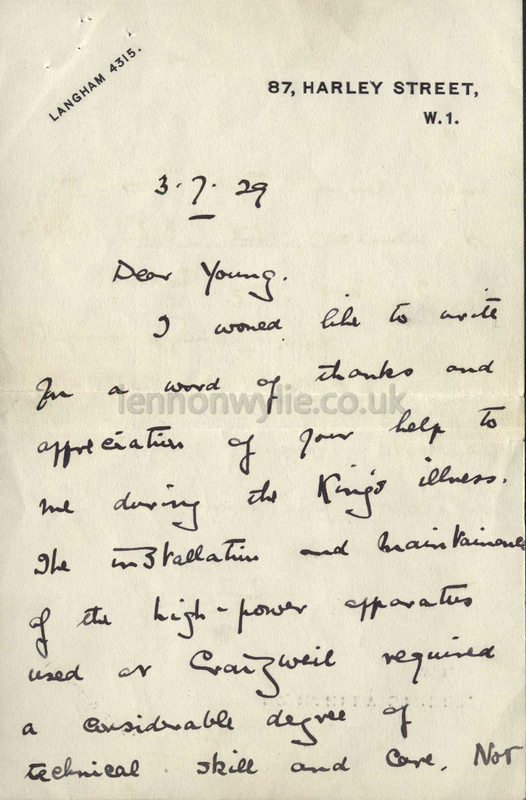 LANGHAM 4315.
87, HARLEY STREET,
W.1.
3.7.29
Dear Young.
I would like to write
you a word of thanks and
lennonwylie.co.uk
appreciation of your help to
me during the King's illness.
The installation and maintainance
of the high-power apparatus
used at Craigweil required
a considerable degree of
technical skill and care. Not